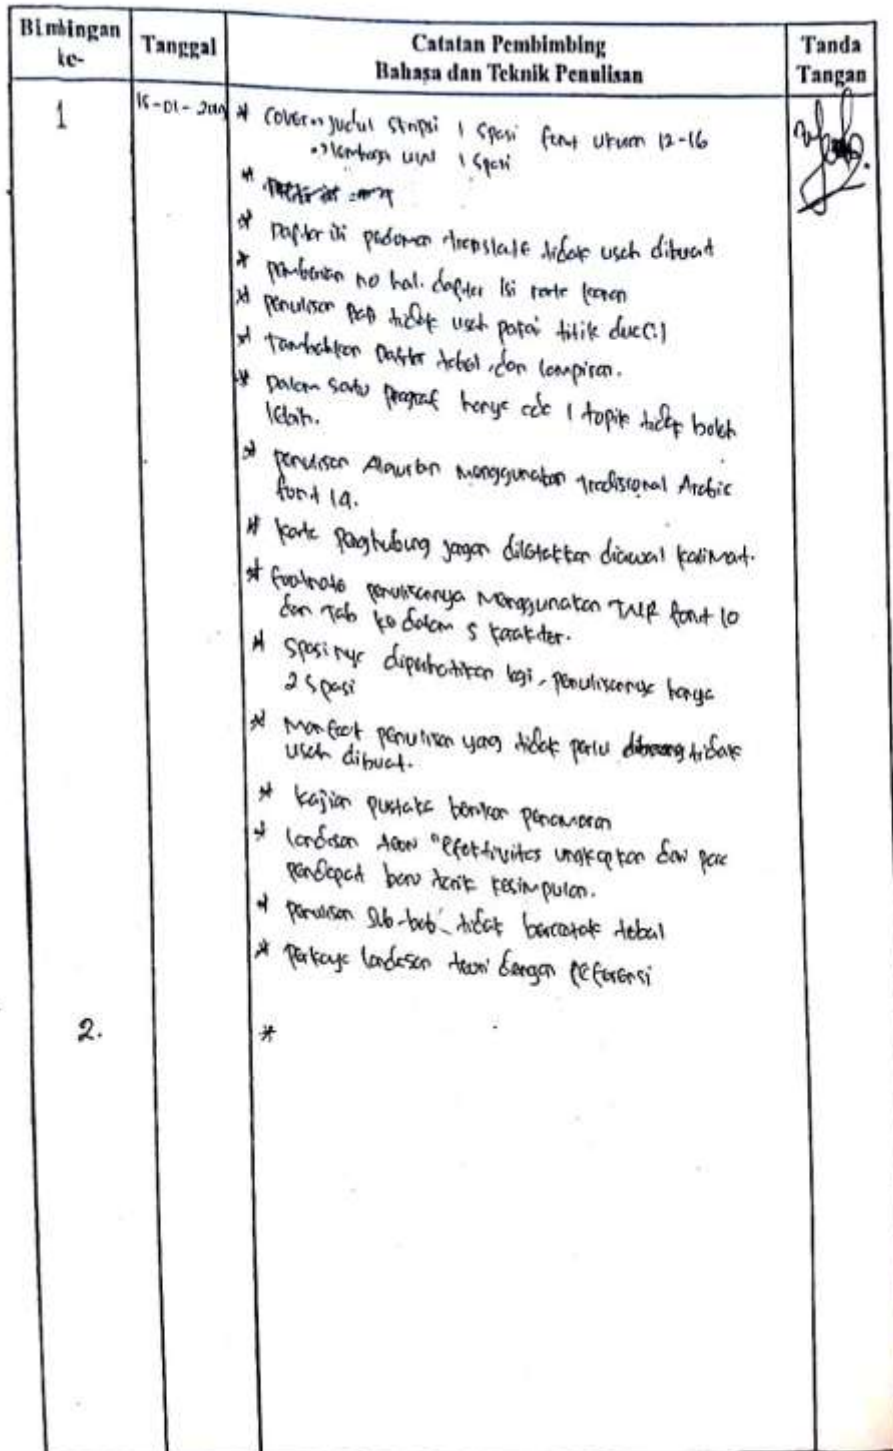 Bimbingan ke-
Tanggal
Catatan Pembimbing
Bahasa dan Teknik Penulisan
Tanda Tangan
1
* Cover -> judul skripsi 1 spasi font ukuran 12-16
-> lembaga UIN 1 spasi
* Daftar isi pedoman translate tidak usah dibuat
* pemberian no hal. daftar isi rata kanan
* penulisan BAB tidak usah pakai titik dua (:)
* Tambahkan Daftar tabel, dan lampiran.
* Dalam satu paragraf hanya ada 1 topik tidak boleh
lebih.
* penulisan Alquran menggunakan Tradisional Arabic
font 14.
* kata penghubung jagan diletakkan diawal kalimat.
* footnote penulisannya menggunakan TNR font 10
dan Tab ke dalam 5 karakter.
* Spasi nya diperhatikan lagi, penulisannya hanya
2 spasi
* Manfaat penulisan yang tidak perlu tidak
usah dibuat.
* kajian pustaka berikan penomoran
* landasan teori "efektivitas ungkapkan dari para
pendapat baru tarik kesimpulan.
* penulisan sub-bab tidak bercetak tebal
* Perkaya landasan teori dengan referensi
2.
*